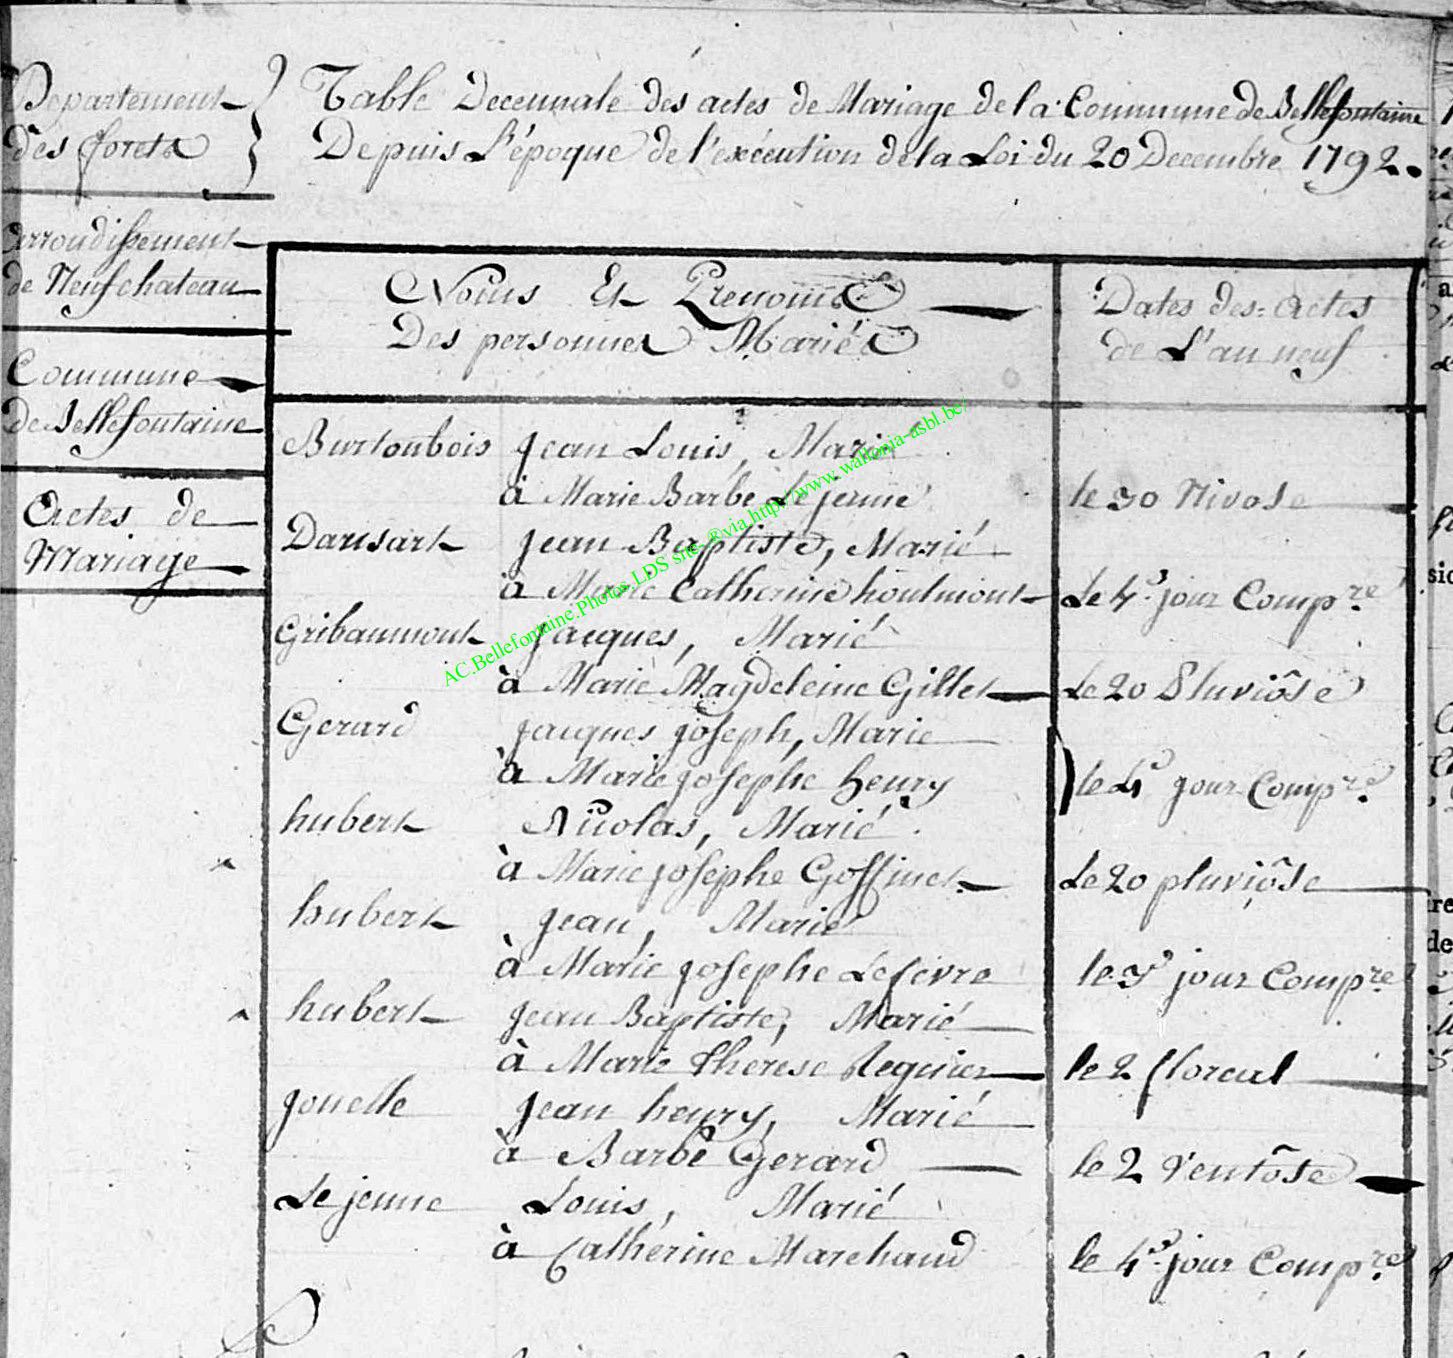 Departement
des forets
Table Decennale des actes de Mariage de la Commune de Bellefontaine
Depuis L'époque de l'exécution de la Loi du 20 Decembre 1792.
arrondissement
de Neufchateau
Commune
de Bellefontaine
Actes de
Mariage
Noms Et Prenoms
Des personnes Mariés
Dates des actes
de L'an neuf
Burtonbois Jean Louis, Marié
à Marie Barbe Lejeune le 30 Nivose
Dansart Jean Baptiste, Marié
à Marie Catherine houlmont Le 4e jour Compre
Gribaumont Jacques, Marié
à Marie Magdeleine Gillet Le 20 Pluviôse
Gerard Jacques joseph, Marie
à Marie josephe henry le 4e jour Compre
hubert Nicolas, Marié
à Marie josephe Goffinet Le 20 pluviôse
hubert Jean, Marié
à Marie josephe Lefevre le jour Compre
hubert Jean Baptiste, Marié
à Marie therese Regnier le 2 floreal
jouelle Jean henry, Marié
à Barbe Gerard le 2 Ventôse
Le jeune Louis, Marié
à Catherine Marchand le 4e jour Compre
AC.Bellefontaine.Photos.LDS site-®via.http://www.wallonia-asbl.be/